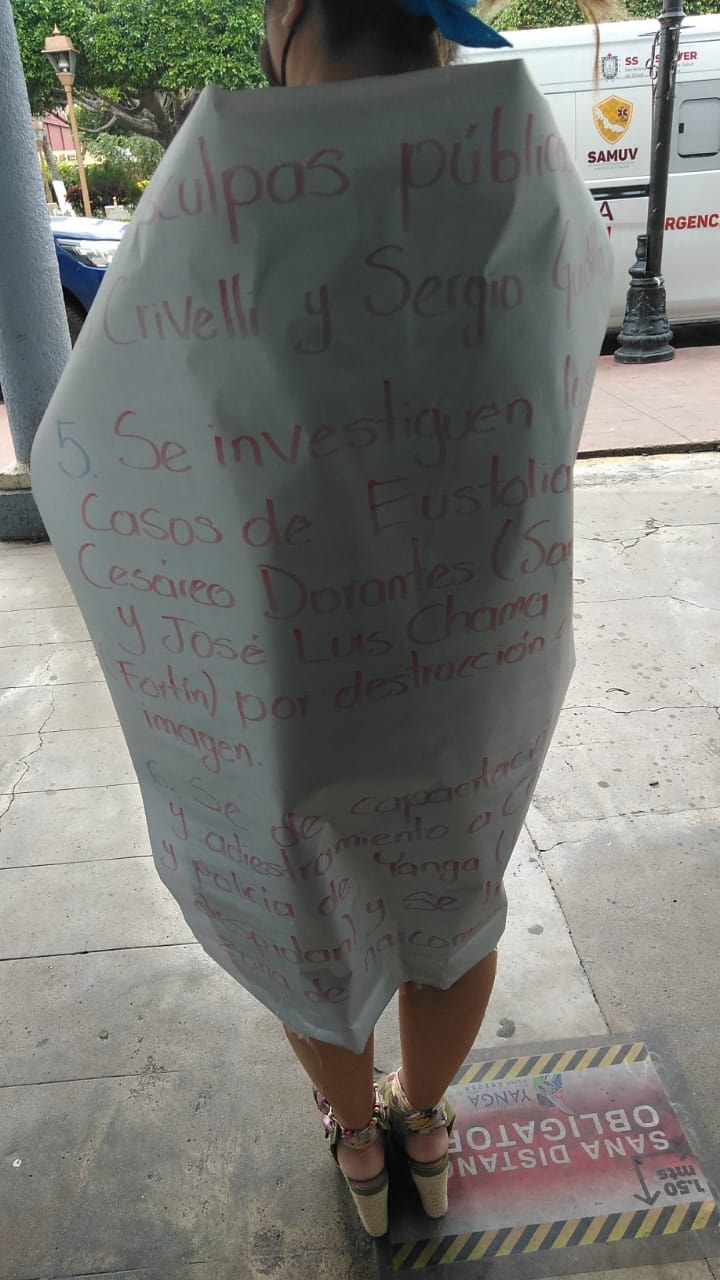 culpas públic
Crivelli y Sergio
5. Se investiguen
casos de Eustolia
Cesáreo Dorantes (Sa
y José Luis Chama
(Fortín) por destrucción
imagen.
6. Se de capacitació
y adiestramiento a
y policía de Yanga (
despidan) y se li
zona de narcom
SS
SAMUV
RGENC
YANGA
SANA DISTANC
OBLIGATOR
1.50
mts